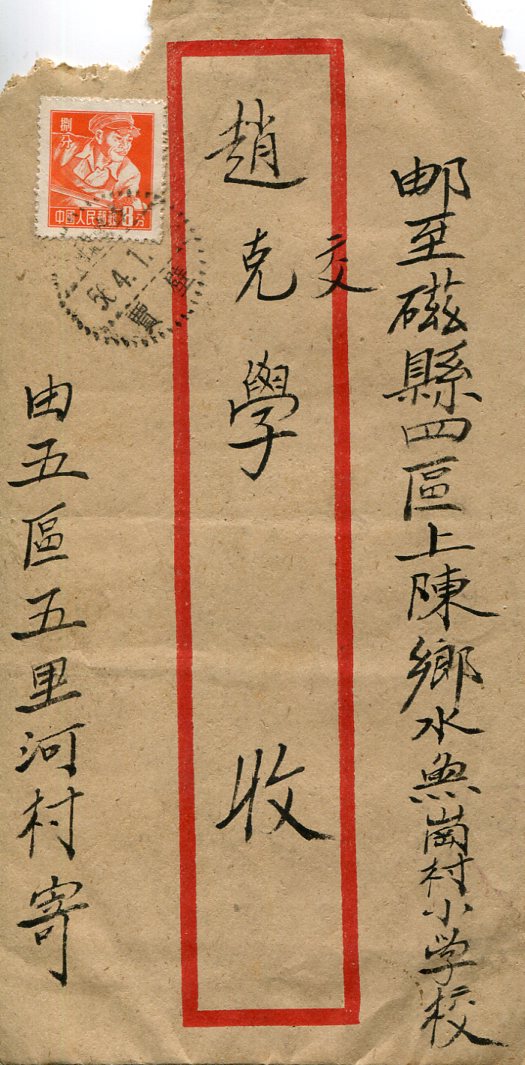 邮至磁縣四區上陳鄉水魚崗村小学校
交
趙克學 收
由五區五里河村寄
捌分
中國人民郵政8分
56.4.1